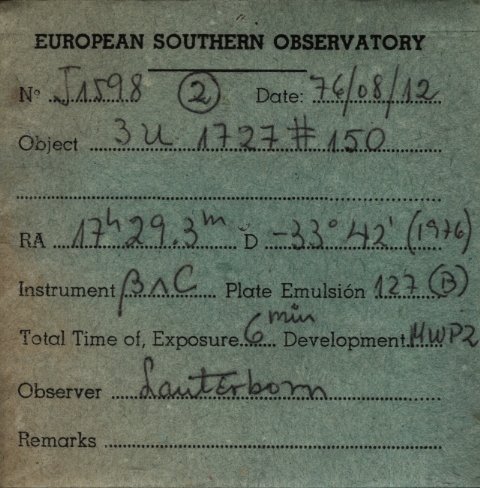 EUROPEAN SOUTHERN OBSERVATORY
Nº J1598 ② Date: 76/08/12
Object 3U 1727 # 150
RA 17ʰ 29.3ᵐ D -33° 42' (1976)
Instrument β∧C Plate Emulsión 127 Ⓑ
Total Time of, Exposure 6 min Development MWP2
Observer Lauterborn
Remarks